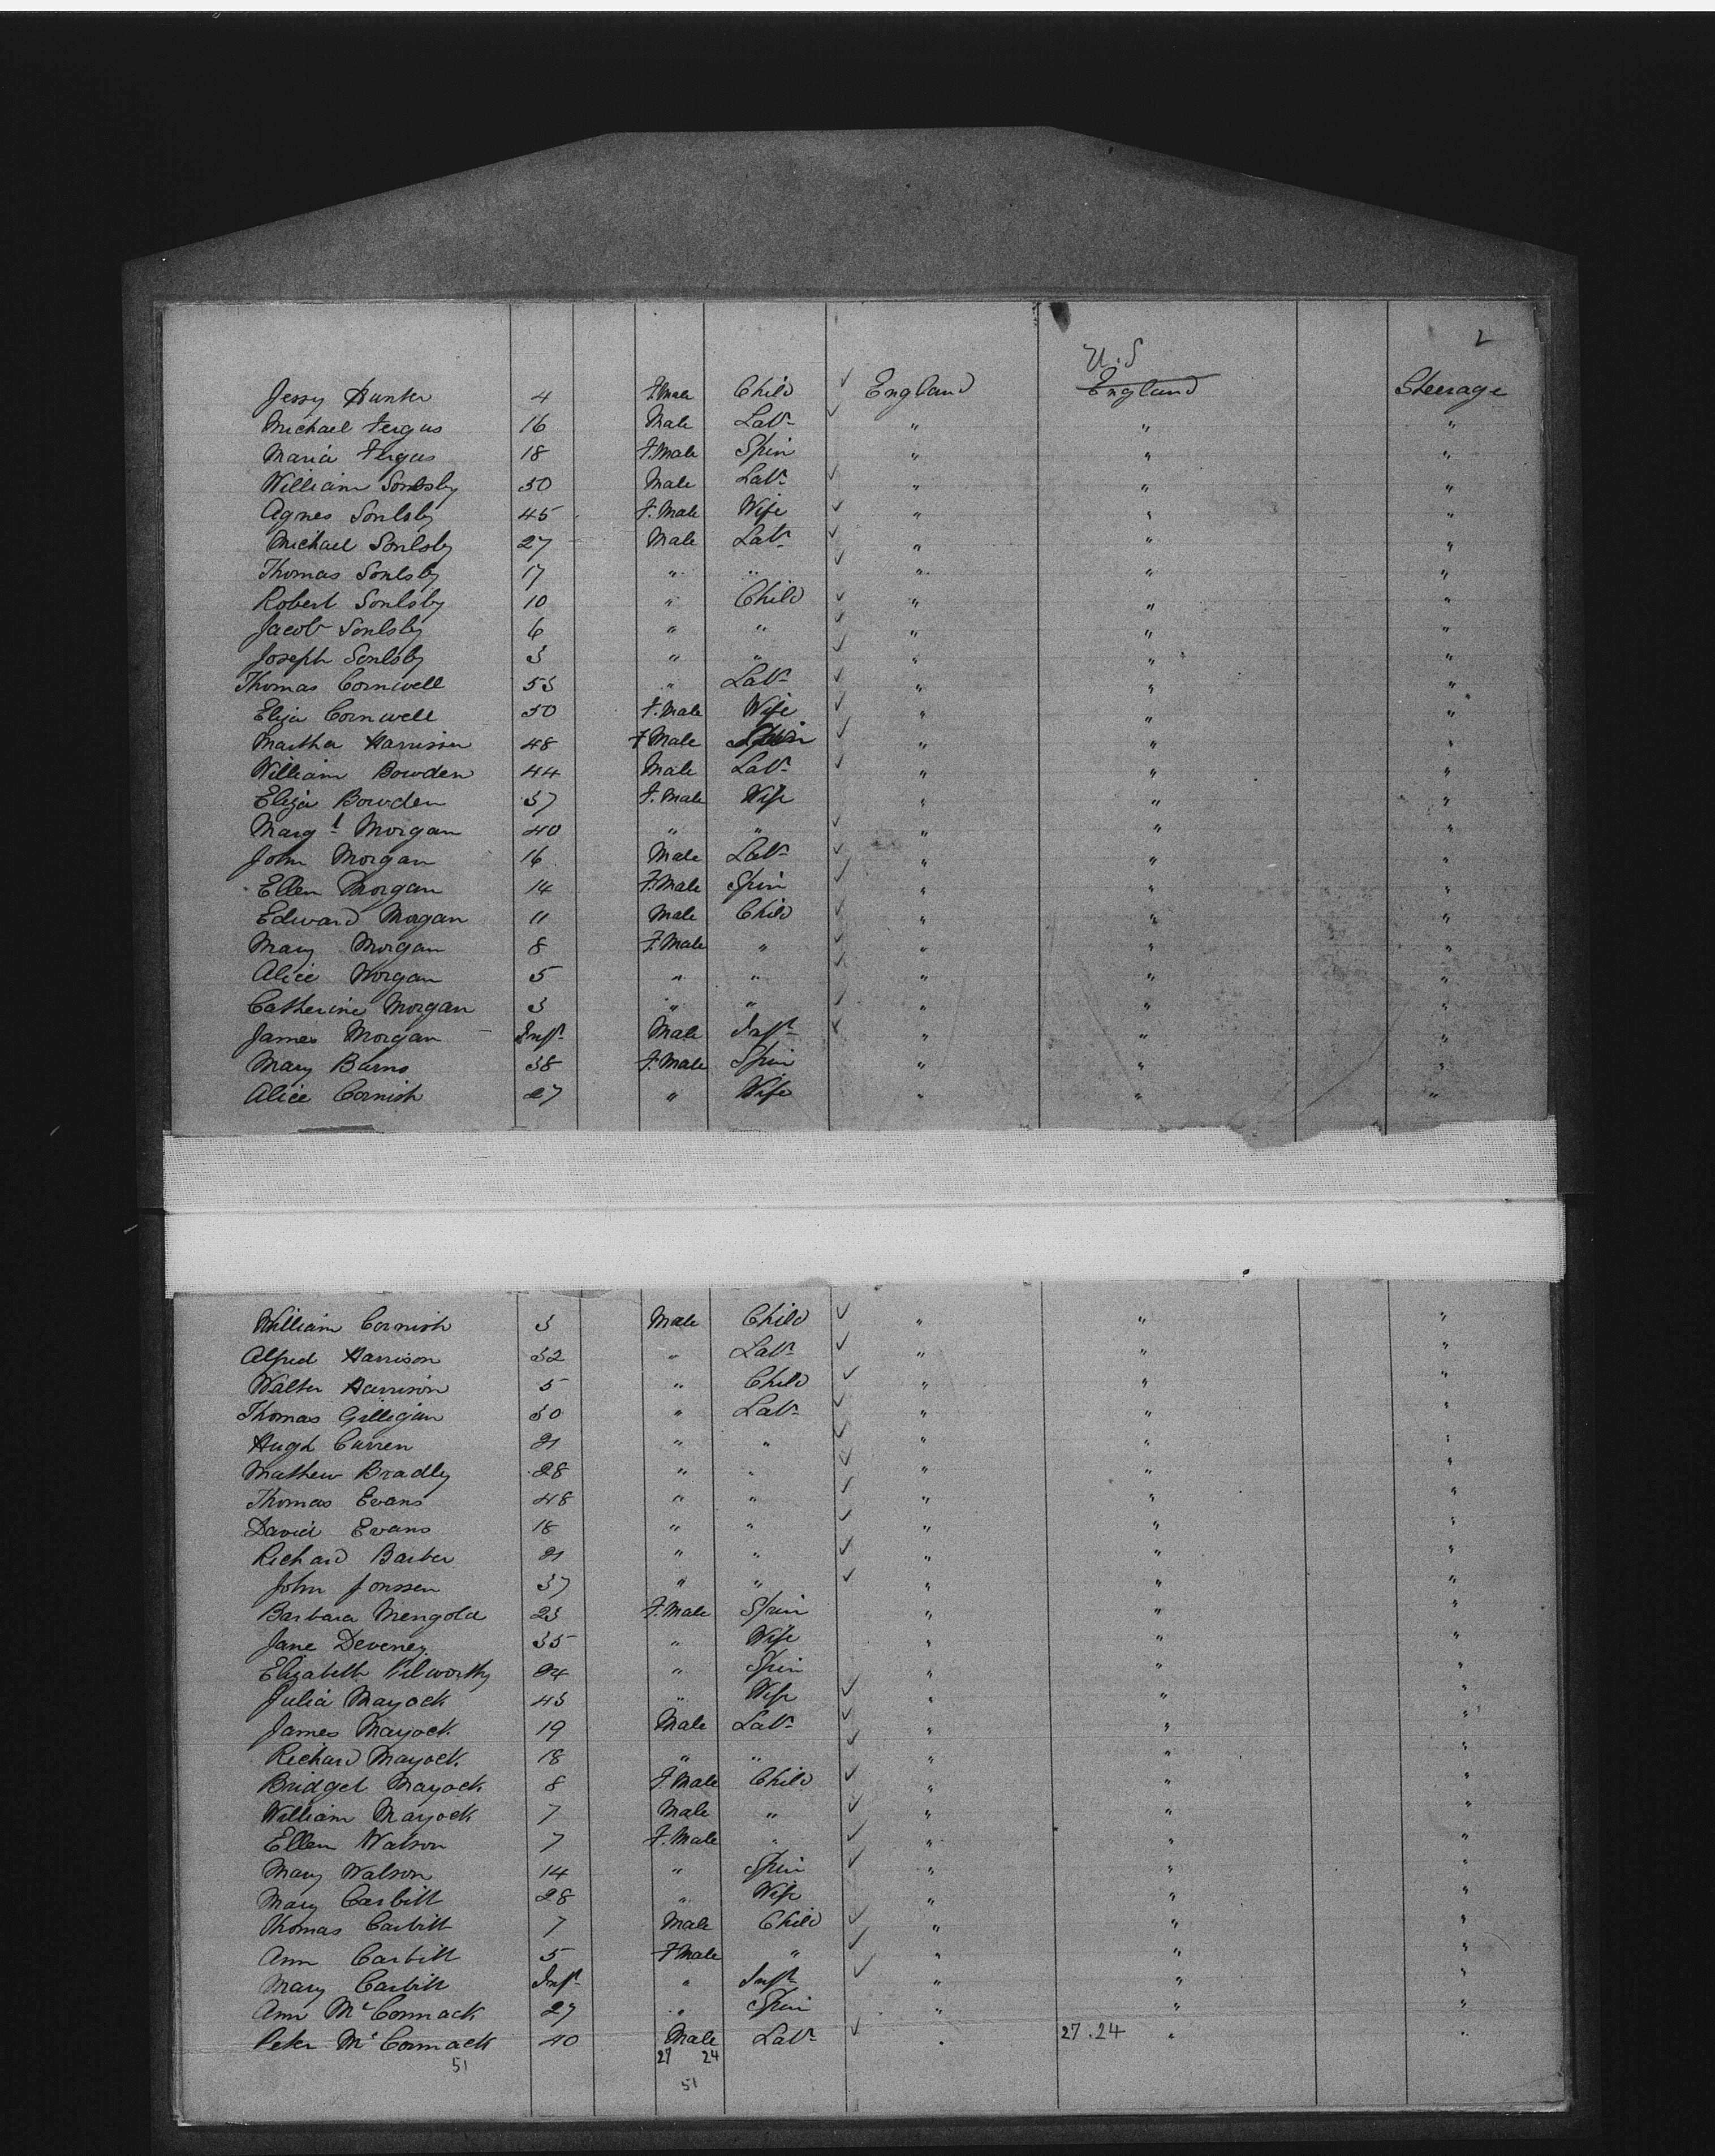 2
U.S
Jessy Hunter 4 F.Male Child ✓ England England Steerage
Michael Fergus 16 Male Labr ✓ " " "
Maria Fergus 18 F.Male Spin " " "
William Soulsby 50 Male Labr ✓ " " "
Agnes Soulsby 45 F.Male Wife ✓ " " "
Michael Soulsby 27 Male Labr ✓ " " "
Thomas Soulsby 17 " " ✓ " " "
Robert Soulsby 10 " Child ✓ " " "
Jacob Soulsby 6 " " ✓ " " "
Joseph Soulsby 3 " " ✓ " " "
Thomas Cornwell 53 " Labr ✓ " " "
Eliza Cornwell 50 F.Male Wife ✓ " " "
Martha Harrison 48 F Male ✓ " " "
William Bowden 44 Male Labr ✓ " " "
Eliza Bowden 37 F.Male Wife " " "
Margt Morgan 40 " " ✓ " " "
John Morgan 16 Male Labr ✓ " " "
Ellen Morgan 14 F.Male Spin ✓ " " "
Edward Morgan 11 Male Child ✓ " " "
Mary Morgan 8 F.Male " ✓ " " "
Alice Morgan 5 " " ✓ " " "
Catherine Morgan 3 " " ✓ " " "
James Morgan Inft Male Inft ✓ " " "
Mary Burns 38 F.Male Spin " " "
Alice Cornish 27 " Wife " " "
William Cornish 3 Male Child ✓ " " "
Alfred Harrison 32 " Labr ✓ " " "
Walter Harrison 5 " Child ✓ " " "
Thomas Gilligan 30 " Labr ✓ " " "
Hugh Curren 21 " " ✓ " " "
Mathew Bradley 28 " " ✓ " " "
Thomas Evans 48 " " ✓ " " "
David Evans 18 " " ✓ " " "
Richard Barber 21 " " ✓ " " "
John Jonssen 37 " " ✓ " " "
Barbara Mengold 23 F.Male Spin " " "
Jane Deveney 35 " Wife " " "
Elizabeth Kilworthy 24 " Spin " " "
Julia Mayock 43 " Wife ✓ " " "
James Mayock 19 Male Labr ✓ " " "
Richard Mayock 18 " " ✓ " " "
Bridget Mayock 8 F.Male Child ✓ " " "
William Mayock 7 Male " ✓ " " "
Ellen Watson 7 F.Male " ✓ " " "
Mary Watson 14 " Spin ✓ " " "
Mary Carbitt 28 " Wife " " "
Thomas Carbitt 7 Male Child ✓ " " "
Ann Carbitt 5 F Male " ✓ " " "
Mary Carbitt Inft " Inft ✓ " " "
Ann McCormack 27 " Spin " " "
Peter McCormack 40 Male Labr ✓ " 27.24 " "
51 27 24
51